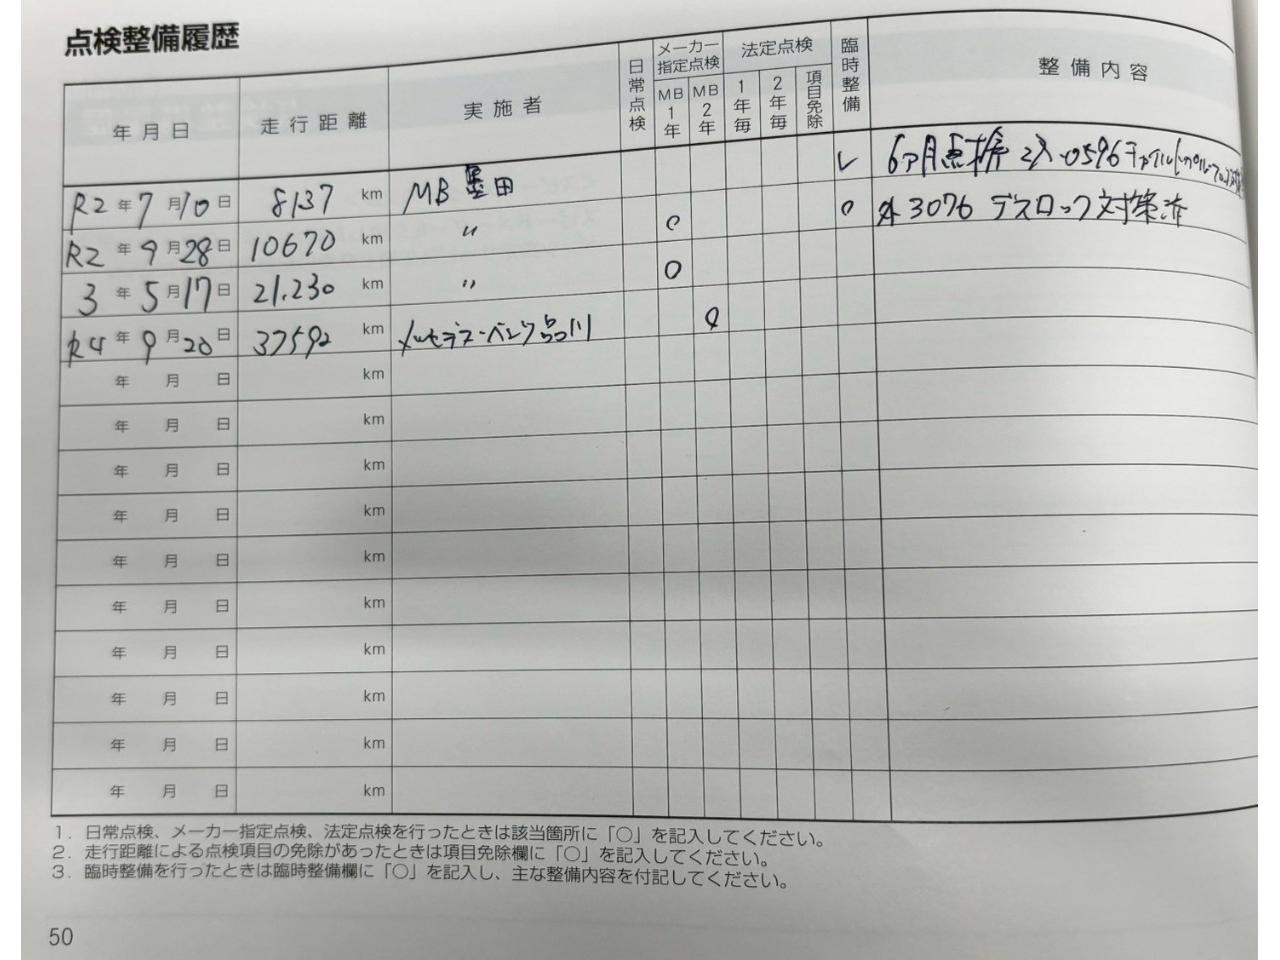 点検整備履歴
年月日 走行距離 実施者 日常点検 メーカー指定点検 MB1年 MB2年 法定点検 1年毎 2年毎 項目免除 臨時整備 整備内容
R2年7月10日 8137km MB 墨田 レ 6ヶ月点検
R2年9月28日 10670km 〃 ○ ○ 外3076 デスロック対策済
3年5月17日 21.230km 〃 ○
R4年9月20日 37592km メルセデス・ベンツ品川 ○
年 月 日 km
年 月 日 km
年 月 日 km
年 月 日 km
年 月 日 km
年 月 日 km
年 月 日 km
年 月 日 km
年 月 日 km
年 月 日 km
1．日常点検、メーカー指定点検、法定点検を行ったときは該当箇所に「○」を記入してください。
2．走行距離による点検項目の免除があったときは項目免除欄に「○」を記入してください。
3．臨時整備を行ったときは臨時整備欄に「○」を記入し、主な整備内容を付記してください。
50